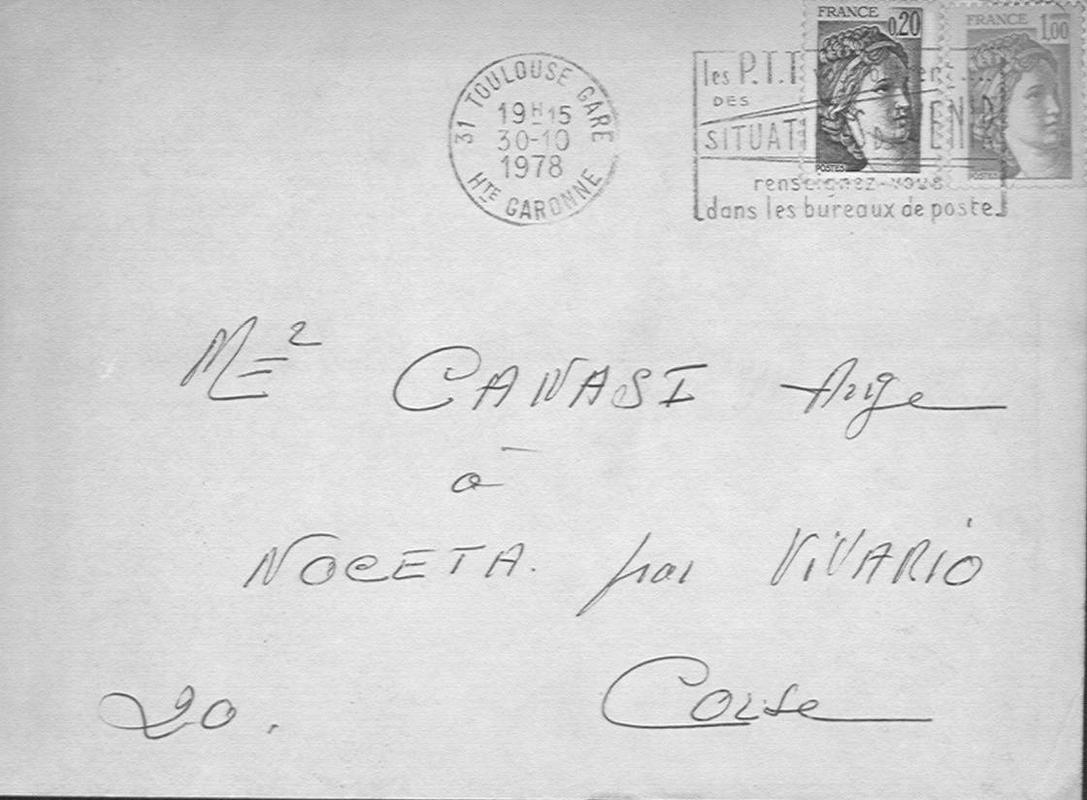 FRANCE 0,20
POSTES
FRANCE 1,00
POSTES
31 TOULOUSE GARE
19H15
30-10
1978
HTE GARONNE
les P.T.T
DES
SITUAT
renseignez-vous
dans les bureaux de poste
ME² CANASI Ange
à
NOCETA. par VIVARIO
20. Corse